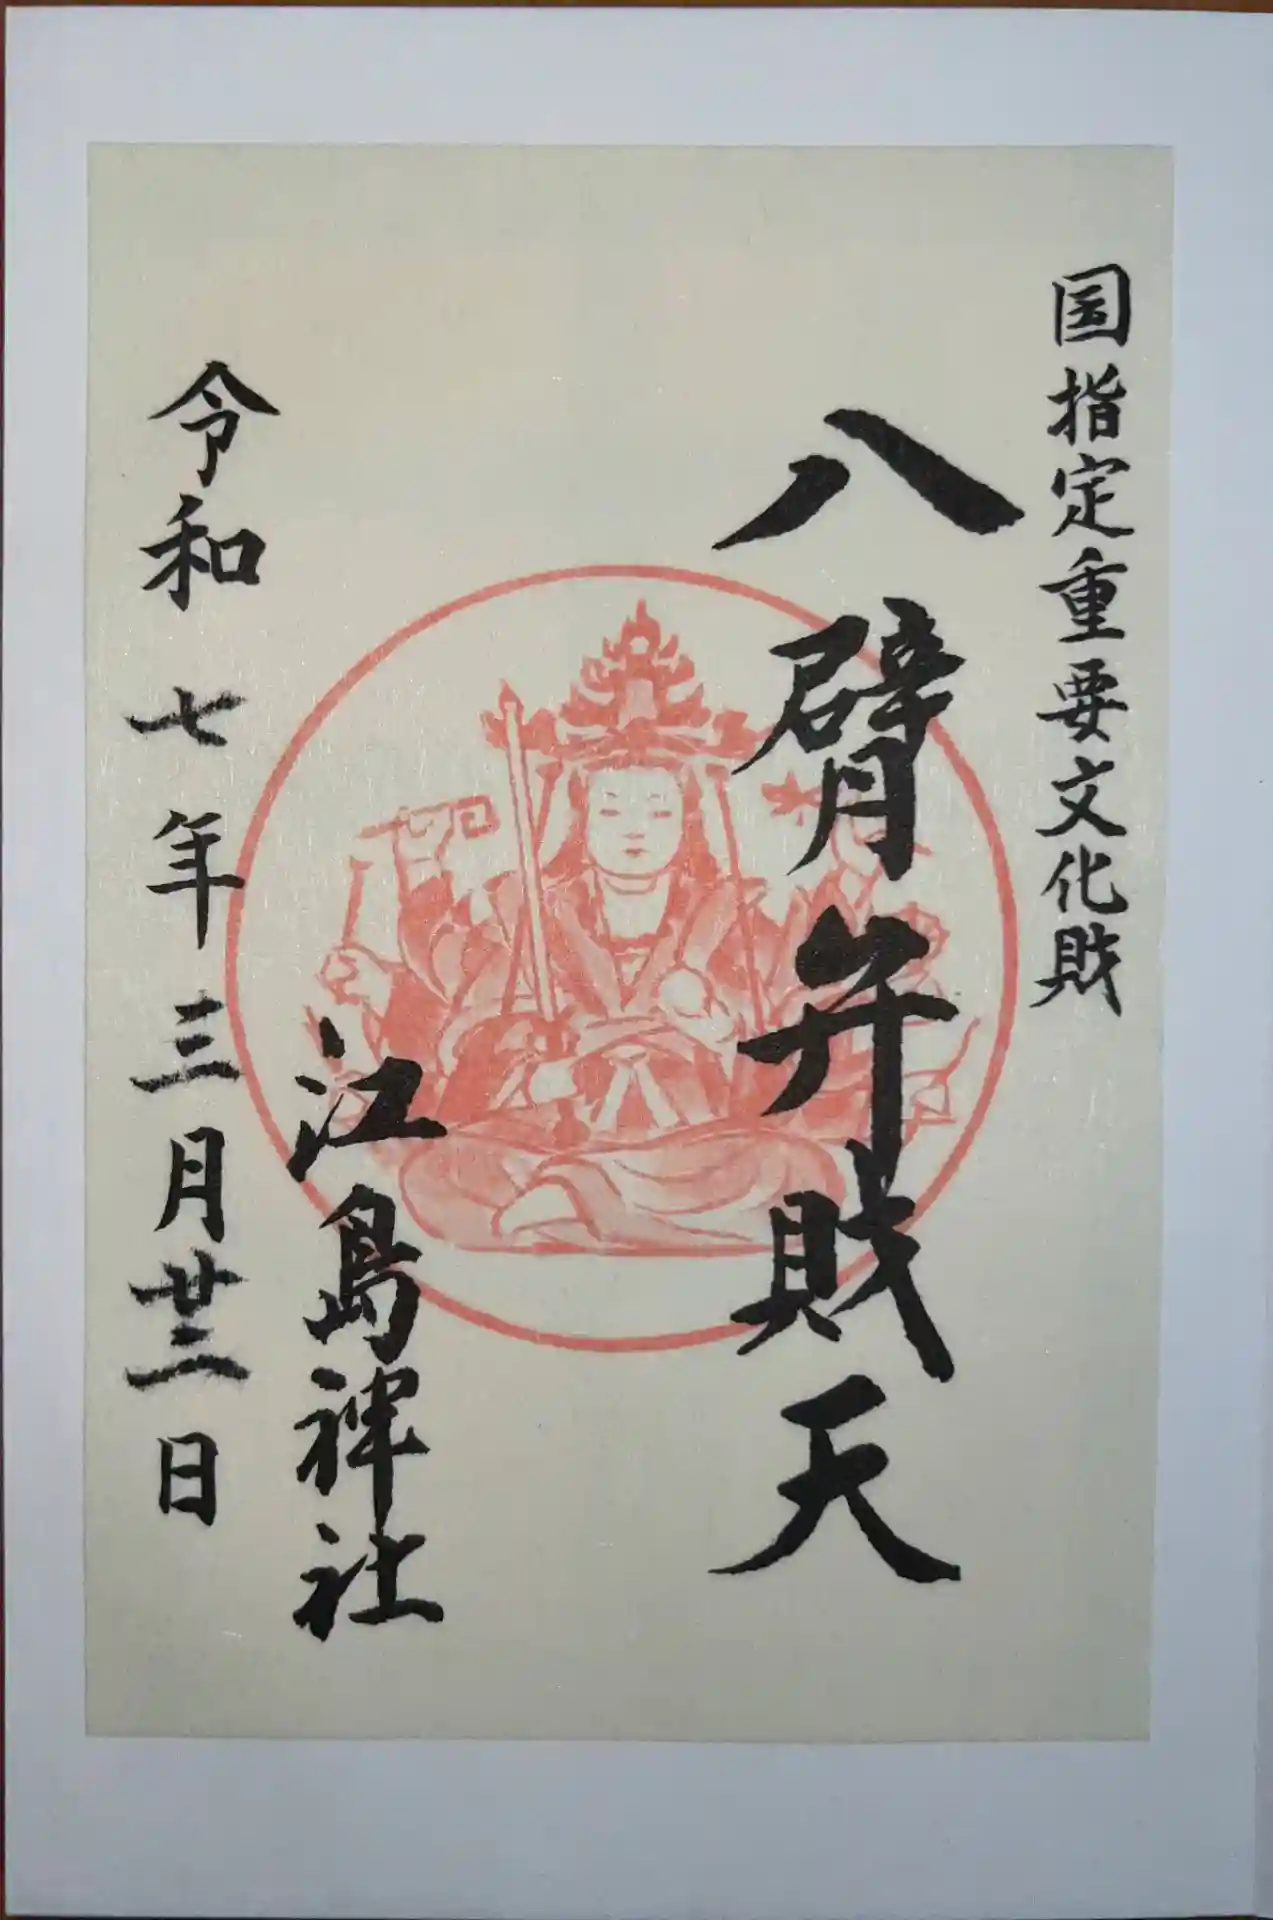 国指定重要文化財
八臂弁財天
江島神社
令和七年三月廿二日